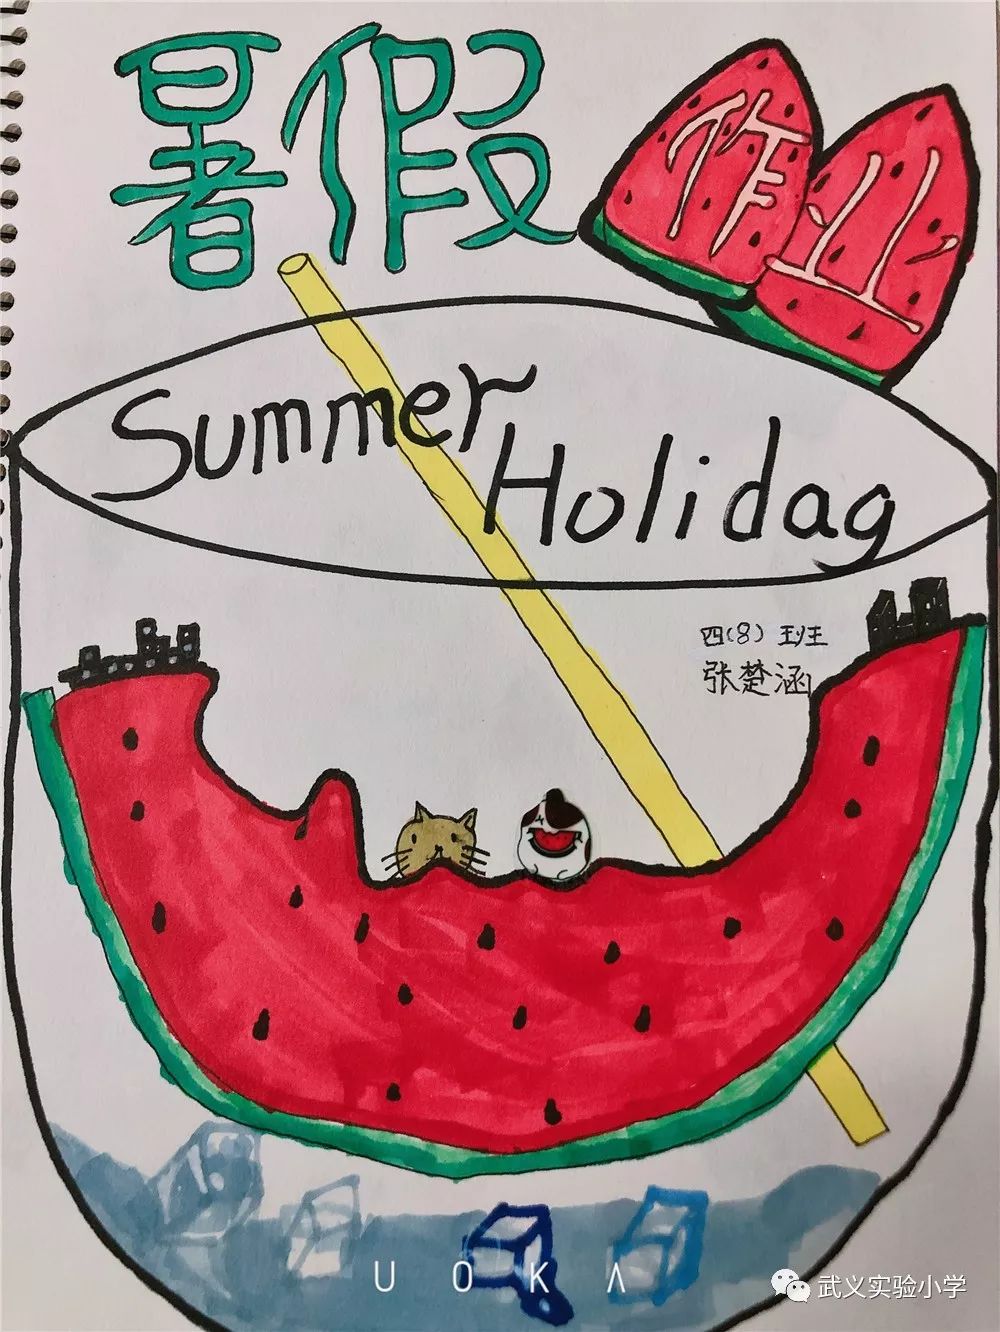 暑假
作业
Summer
Holidag
四(8)班
张楚涵
UOKA
武义实验小学